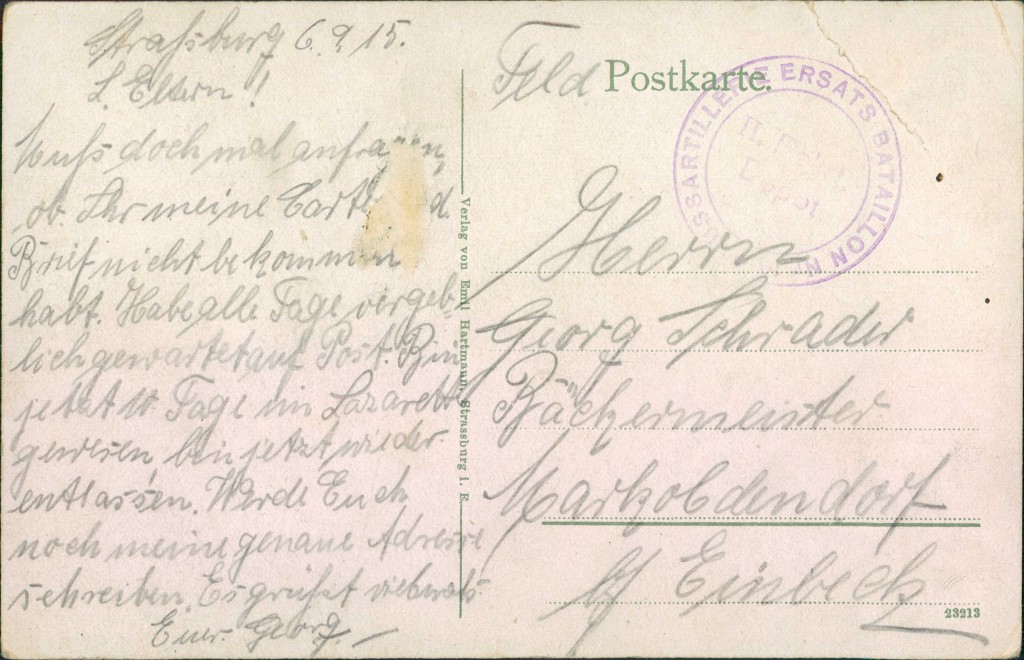 Strafsburg 6.9.15.
L. Eltern!
Mufs doch mal anfragen,
ob Ihr meine
Brief nicht bekommen
habt. Habe alle Tage vergeb-
lich gewartet auf Post. Bin
jetzt 10 Tage im Lazarett
gewesen, bin jetzt wieder
entlassen. Werde Euch
noch meine genaue Adresse
schreiben. Es grüfst vielmals
Euer Georg.
Verlag von Emil Hartmann, Strassburg i. E.
Feld Postkarte.
FUSSARTILLERIE ERSATS BATAILLON N
II.
Depot
Herrn
Georg Schrader
Bäckermeister
Markoldendorf
b/ Einbeck
23213